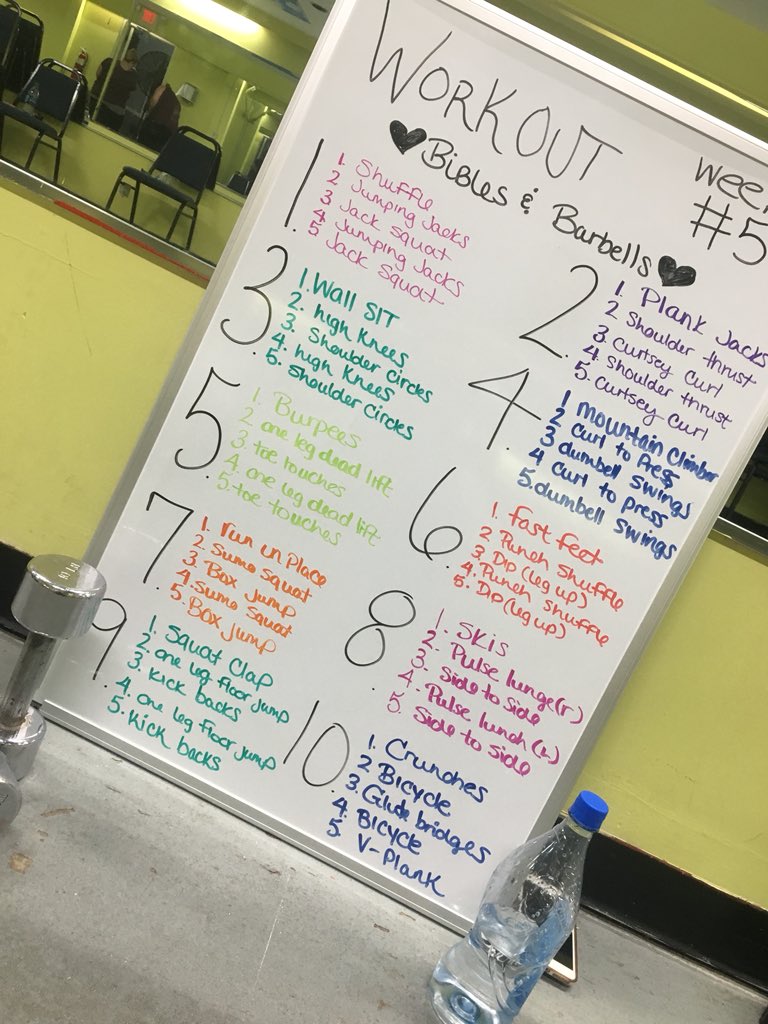 WORKOUT
♥ Bibles & Barbells ♥
Week
#5
1
1. Shuffle
2 Jumping Jacks
3 Jack Squat
4. Jumping Jacks
5. Jack Squat
2.
1. Plank Jacks
2 Shoulder thrust
3 Curtsey Curl
4. Shoulder thrust
5. Curtsey Curl
3.
1. Wall SIT
2. high Knees
3. Shoulder circles
4. high Knees
5. Shoulder circles
4.
1 mountain Climber
2 Curl to Press
3 dumbell swings
4 Curl to press
5. dumbell swings
5.
1. Burpees
2 one leg dead lift
3. toe touches
4. one leg dead lift
5. toe touches
6.
1. fast feet
2 Punch Shuffle
3. Dip (leg up)
4. Punch Shuffle
5. Dip (leg up)
7.
1. run in Place
2. Sumo Squat
3. Box Jump
4. Sumo Squat
5. Box jump
8.
1. Skis
2. Pulse lunge (r)
3. Side to Side
4. Pulse lunch (L)
5. Side to Side
9
1. Squat Clap
2. one leg floor jump
3. Kick backs
4. one leg floor jump
5. Kick backs
10.
1. Crunches
2 Bicycle
3. bridges
4. Bicycle
5. V-Plank